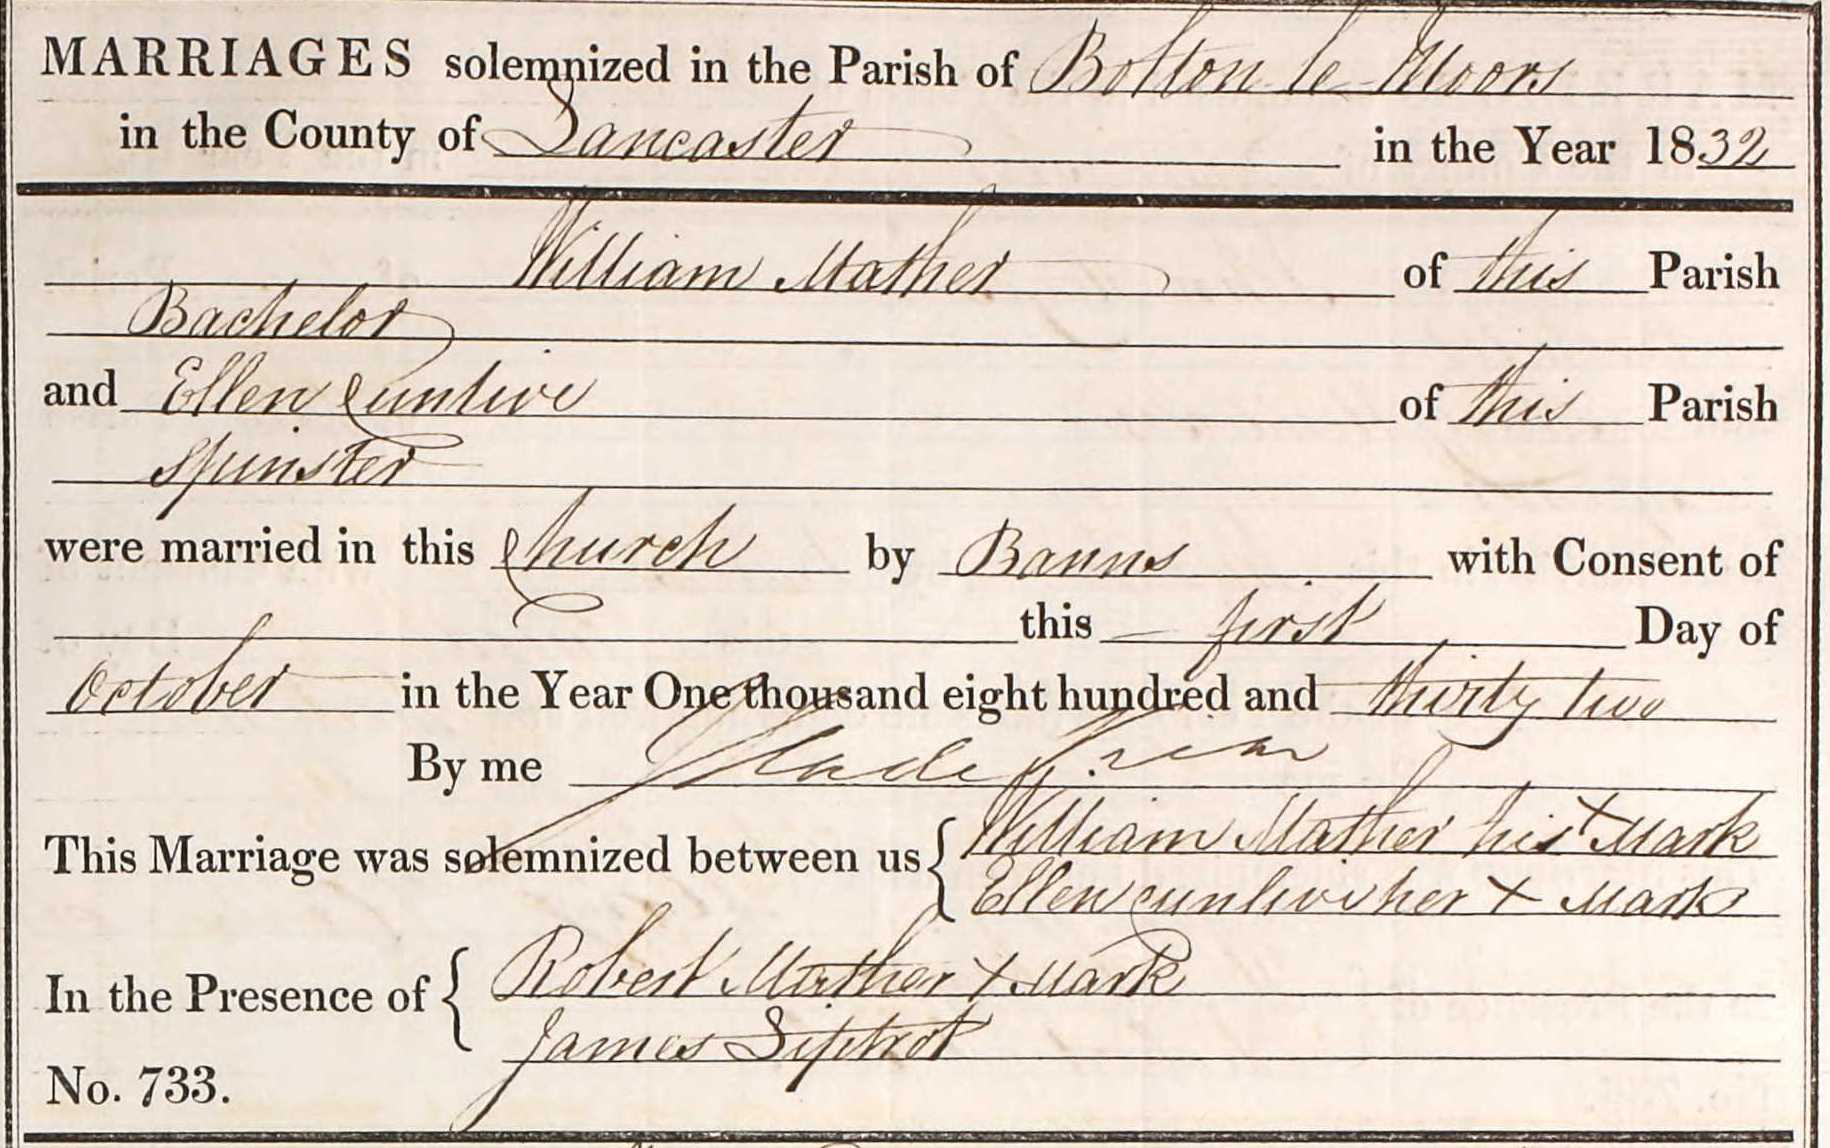 MARRIAGES solemnized in the Parish of Bolton le Moors
in the County of Lancaster in the Year 1832
William Mather of this Parish
Bachelor
and Ellen Cunlive of this Parish
Spinster
were married in this Church by Banns with Consent of
this first Day of
October in the Year One thousand eight hundred and thirty two
By me Slade
This Marriage was solemnized between us { William Mather his X Mark
Ellen Cunlive her X Mark
In the Presence of { Robert Mather X Mark
James Siptrot
No. 733.